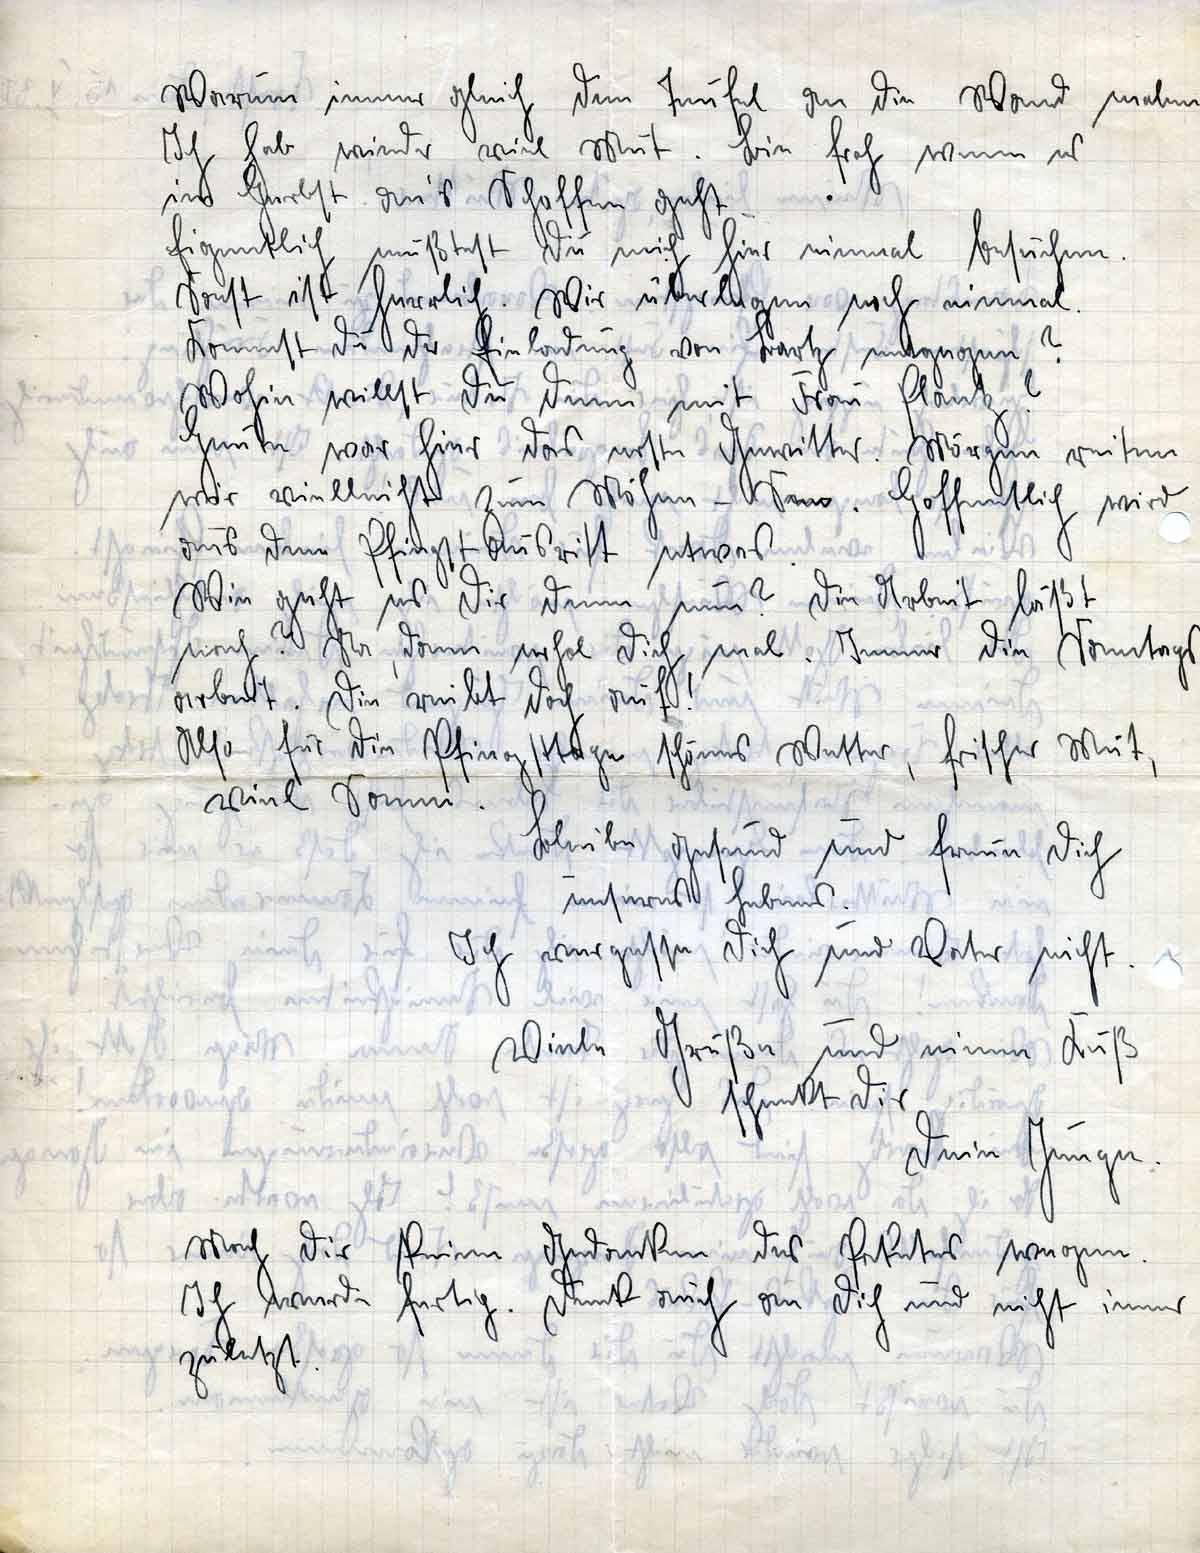 Warum immer gleich den Teufel an die Wand malen
Ich hab wieder viel Mut. Bin froh wenn es
im Herbst an's Schaffen geht
Eigentlich müßtest Du mich hier einmal besuchen.
Sonst ist herrlich. Wir überlegen noch einmal.
Kommst Du der Einladung von entgegen?
Wohin willst Du denn mit Frau Plantz?
Heute war hier das erste Gewitter. Morgen reiten
wir vielleicht zum Möhne-See. Hoffentlich wird
aus dem Pfingstausritt etwas.
Wie geht es Dir denn nun? Die Arbeit läßt
nach? Na, dann erhol Dich mal. Immer die Sonntags
arbeit. Die reibt doch auf!
Also für die Pfingsttage schönes Wetter, frischer Mut,
viel Sonne.
Bleibe gesund und freue Dich
unseres Lebens.
Ich vergesse Dich und Vater nicht.
Viele Grüße und einen Kuß
schenkt Dir
Dein Junge.
Mach Dir keine Gedanken des Paketes wegen.
Ich werde fertig. Denk auch an Dich und nicht immer
zuletzt.